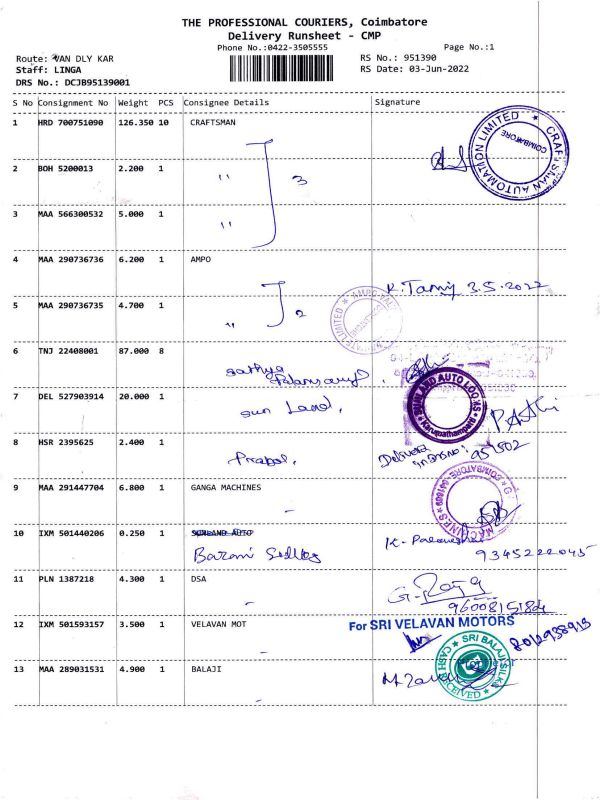 THE PROFESSIONAL COURIERS, Coimbatore
Delivery Runsheet - CMP
Phone No.:0422-3505555
Page No.:1
Route: VAN DLY KAR
RS No.: 951390
Staff: LINGA
RS Date: 03-Jun-2022
DRS No.: DCJB95139001
S No Consignment No Weight PCS Consignee Details Signature
1 HRD 700751090 126.350 10 CRAFTSMAN
CRAFTSMAN AUTOMATION LIMITED ★ COIMBATORE
2 BOH 5200013 2.200 1 " 3
3 MAA 566300532 5.000 1 "
4 MAA 290736736 6.200 1 AMPO
3.5.2022
5 MAA 290736735 4.700 1 " 2
6 TNJ 22408001 87.000 8 Sathya
7 DEL 527903914 20.000 1 Sun Land,
SUNLAND AUTO LOOKS
8 HSR 2395625 2.400 1
951502
9 MAA 291447704 6.800 1 GANGA MACHINES -
10 IXM 501440206 0.250 1 SUNLAND AUTO
9345222045
11 PLN 1387218 4.300 1 DSA -
12 IXM 501593157 3.500 1 VELAVAN MOT -
For SRI VELAVAN MOTORS
13 MAA 289031531 4.900 1 BALAJI -
SRI BALAJI SILKS ★ CASH RECEIVED ★